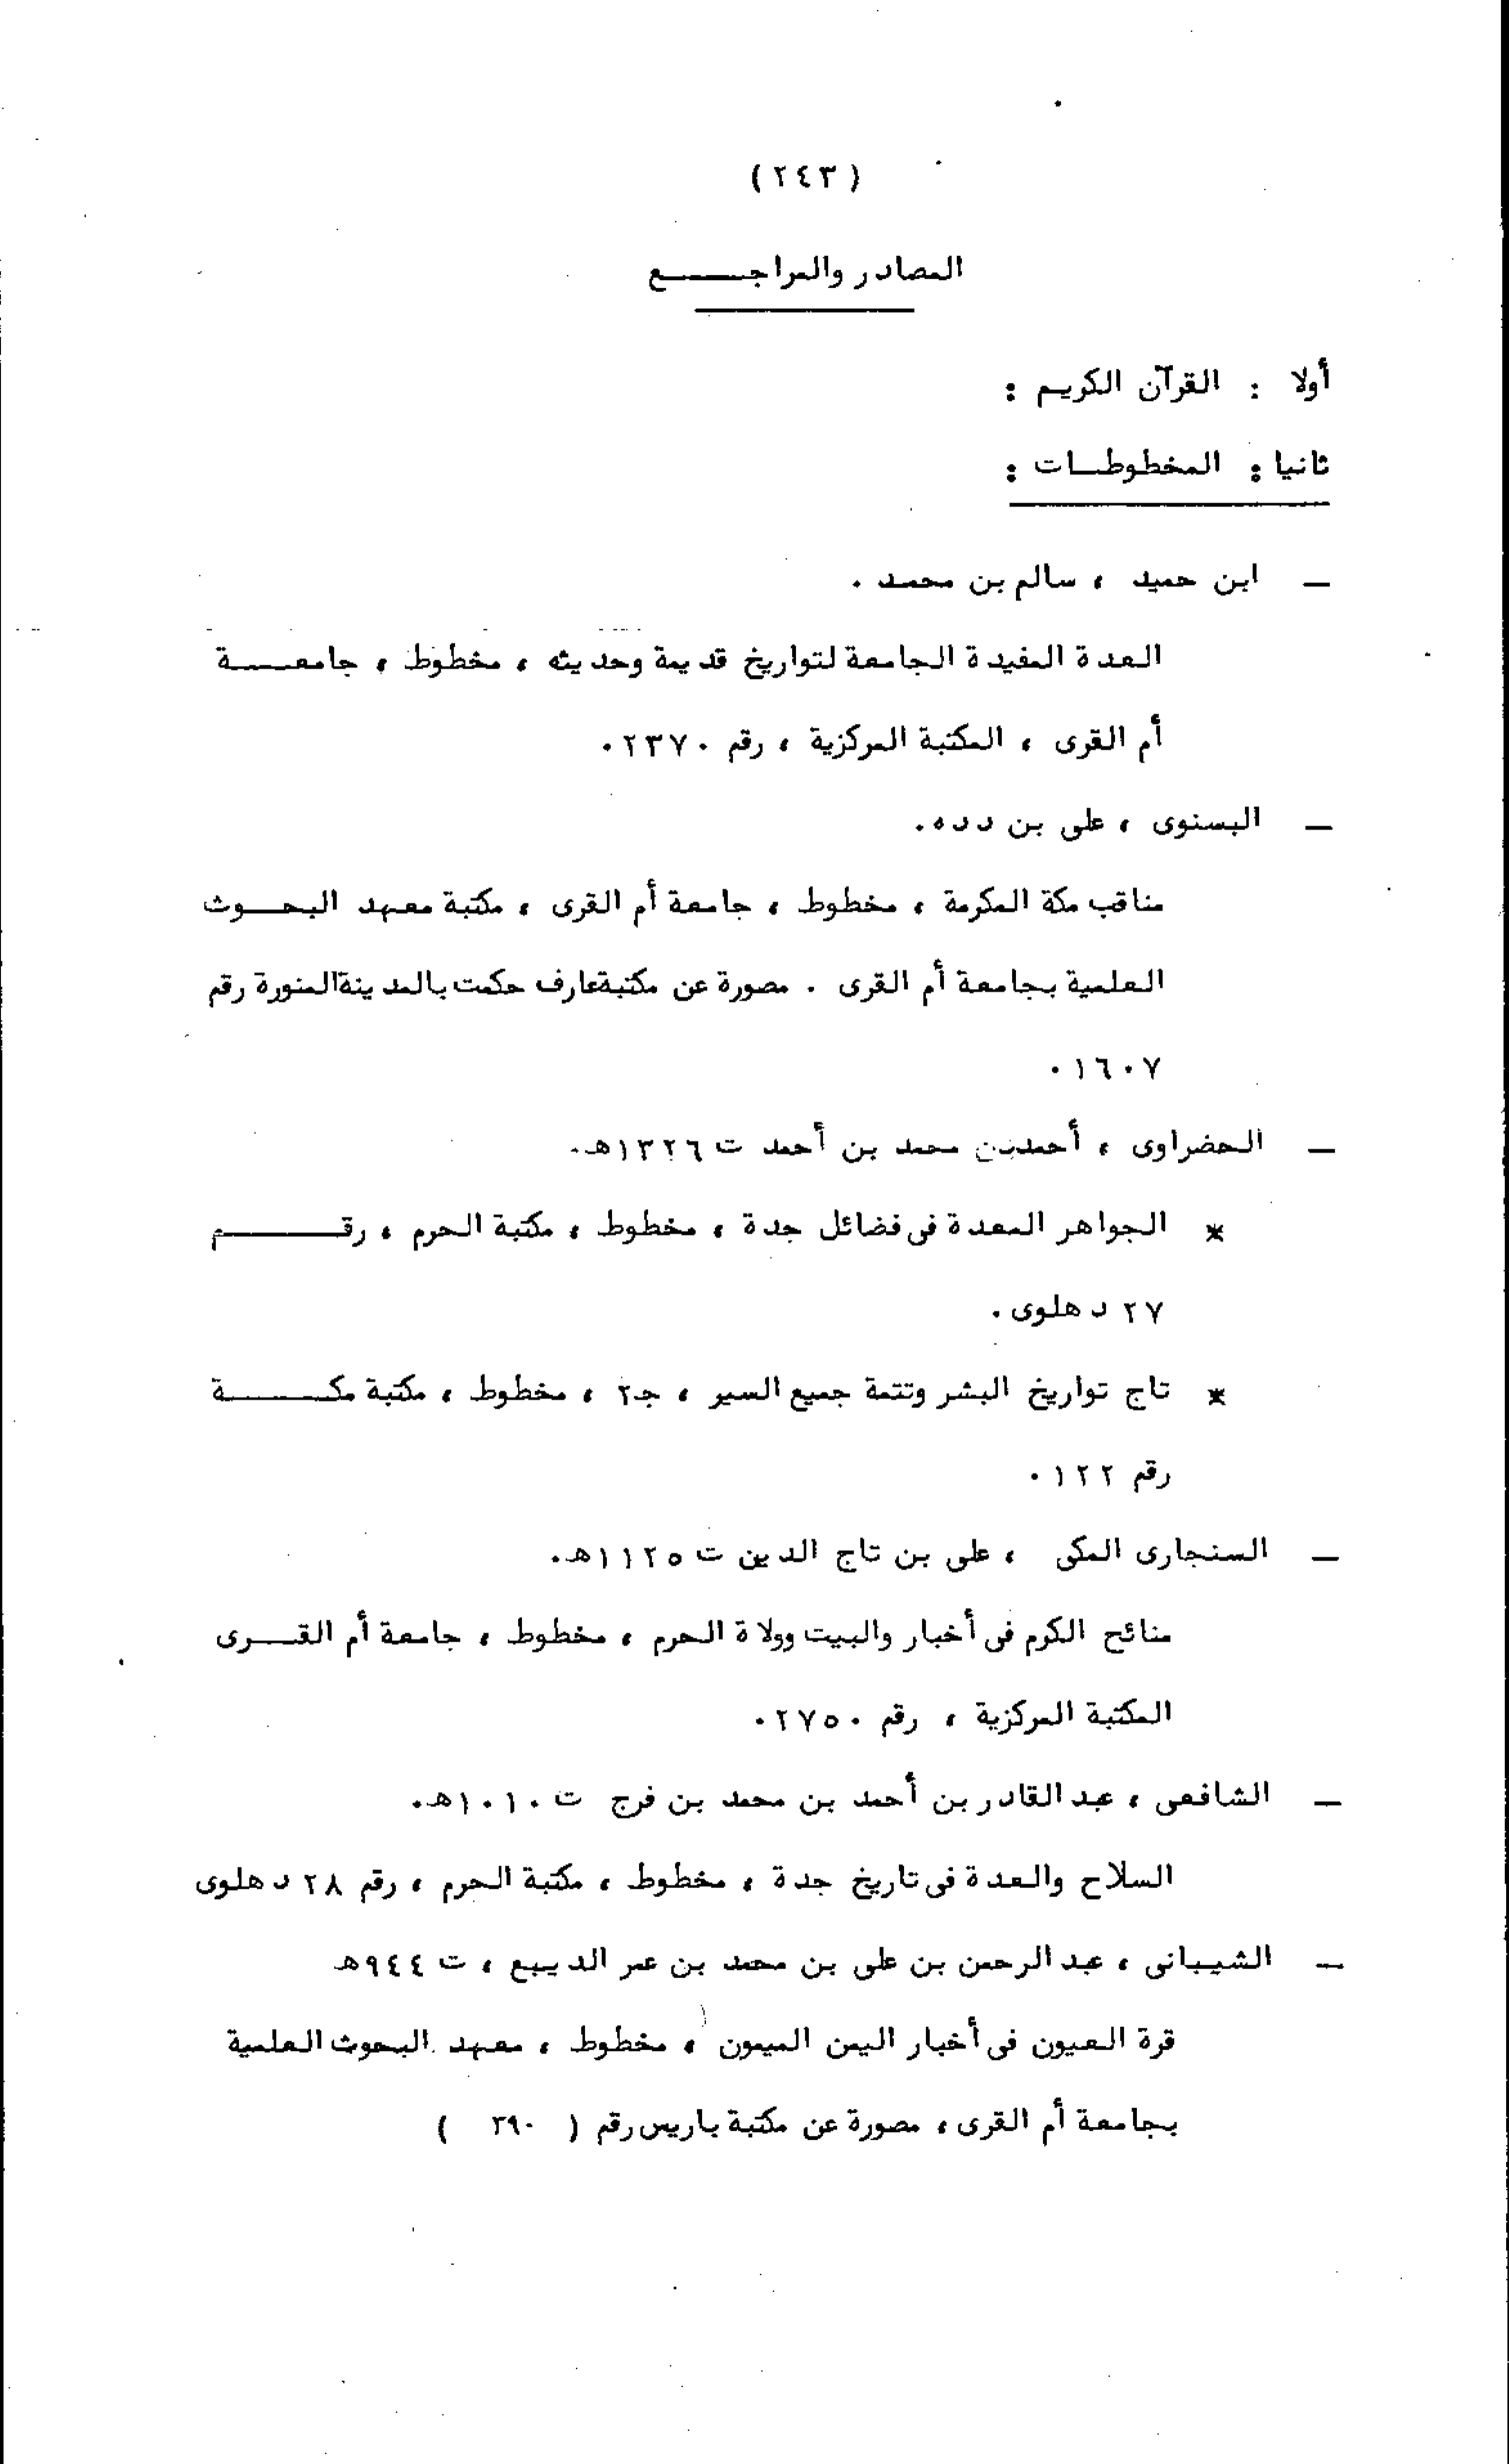 ( ٢٤٣ )
المصادر والمراجـــــع
أولا : القرآن الكريم :
ثانيا : المخطوطـات :
ـ ابن حميد ، سالم بن محمد .
العدة المفيدة الجامعة لتواريخ قديمة وحديثه ، مخطوط ، جامعـــة
أم القرى ، المكتبة المركزية ، رقم ٢٣٧٠ .
ـ البسنوى ، على بن دده .
مناقب مكة المكرمة ، مخطوط ، جامعة أم القرى ، مكتبة معهد البحــوث
العلمية بجامعة أم القرى . مصورة عن مكتبةعارف حكمت بالمدينةالمنورة رقم
١٦٠٧ .
ـ الحضراوى ، أحمدبن محمد بن أحمد ت ١٣٢٦هـ.
* الجواهر المعدة فى فضائل جدة ، مخطوط ، مكتبة الحرم ، رقــــــم
٢٧ دهلوى .
* تاج تواريخ البشر وتتمة جميع السير ، جـ٢ ، مخطوط ، مكتبة مكـــــة
رقم ١٢٢ .
ـ السنجارى المكى ، على بن تاج الدين ت ١١٢٥هـ.
منائح الكرم فى أخبار والبيت وولاة الحرم ، مخطوط ، جامعة أم القـــرى
المكتبة المركزية ، رقم ٢٧٥٠ .
ـ الشافعى ، عبد القادر بن أحمد بن محمد بن فرج ت ١٠١٠هـ.
السلاح والعدة فى تاريخ جدة ، مخطوط ، مكتبة الحرم ، رقم ٢٨ دهلوى
ـ الشيبانى ، عبد الرحمن بن على بن محمد بن عمر الديبع ، ت ٩٤٤هـ
قرة العيون فى أخبار اليمن الميمون ، مخطوط ، معهد البحوث العلمية
بجامعة أم القرى ، مصورة عن مكتبة باريس رقم ( ٣٩٠ )